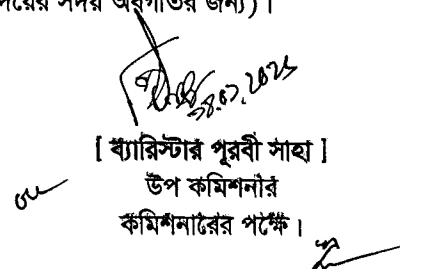 দয়ের সদয় অবগতির জন্য)।
[ ব্যারিস্টার পূরবী সাহা ]
উপ কমিশনার
কমিশনারের পক্ষে।